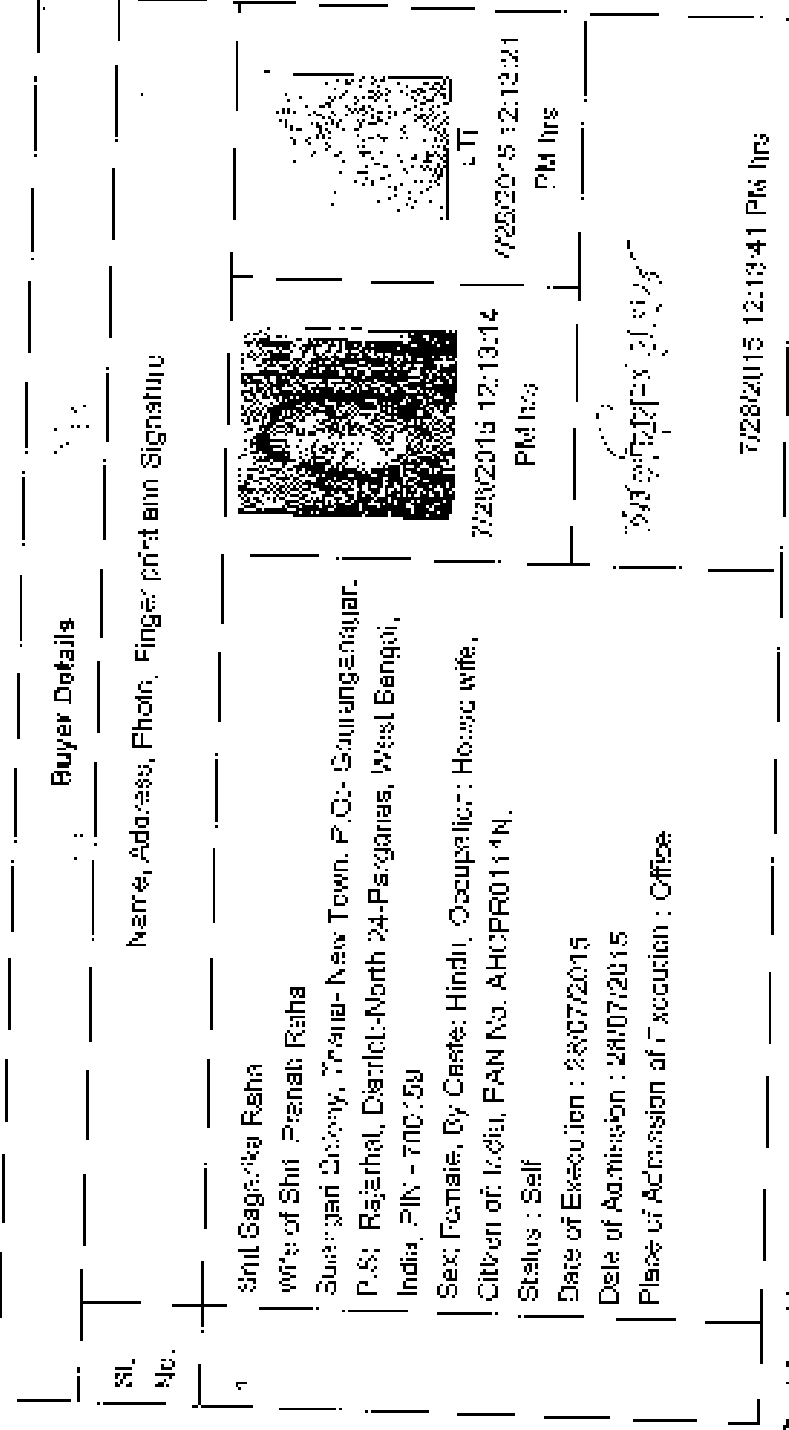 Buyer Details
SL No.
Name, Address, Photo, Finger print and Signature
1
Smt Sagarika Raha
Wife of Shri Pranab Raha
Colony, Thana- New Town, P.O:- Gouranganagar,
P.S:- Rajarhat, District:-North 24-Parganas, West Bengal,
India, PIN - 700159
Sex: Female, By Caste: Hindu, Occupation: House wife,
Citizen of: India, PAN No.
Status : Self
Date of Execution : 28/07/2015
Date of Admission : 28/07/2015
Place of Admission of Execution : Office
7/28/2015 12:13:14
PM hrs
LTI
7/28/2015 12:13:21
PM hrs
7/28/2015 12:13:41 PM hrs